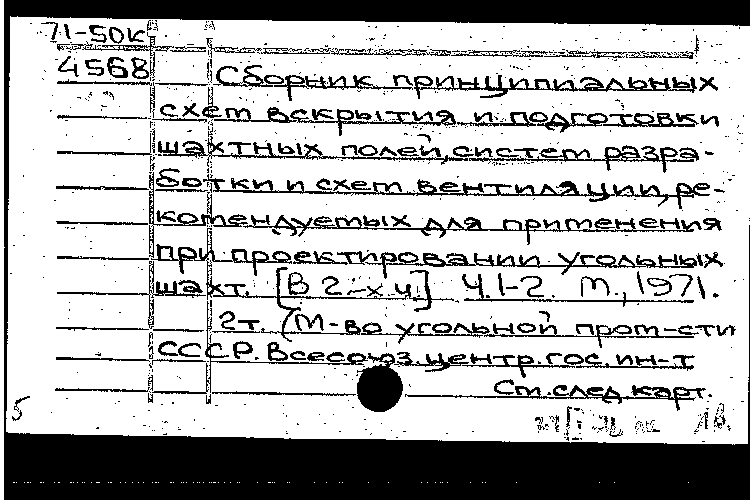 71-50К
4568 Сборник принципиальных
схем вскрытия и подготовки
шахтных полей, систем разра-
ботки и схем вентиляции, ре-
комендуемых для применения
при проектировании угольных
шахт. [В 2-х ч.] Ч.1-2. М., 1971.
2т. (М-во угольной пром-сти
СССР. Всесоюз. центр. гос. ин-т
См. след. карт.
5